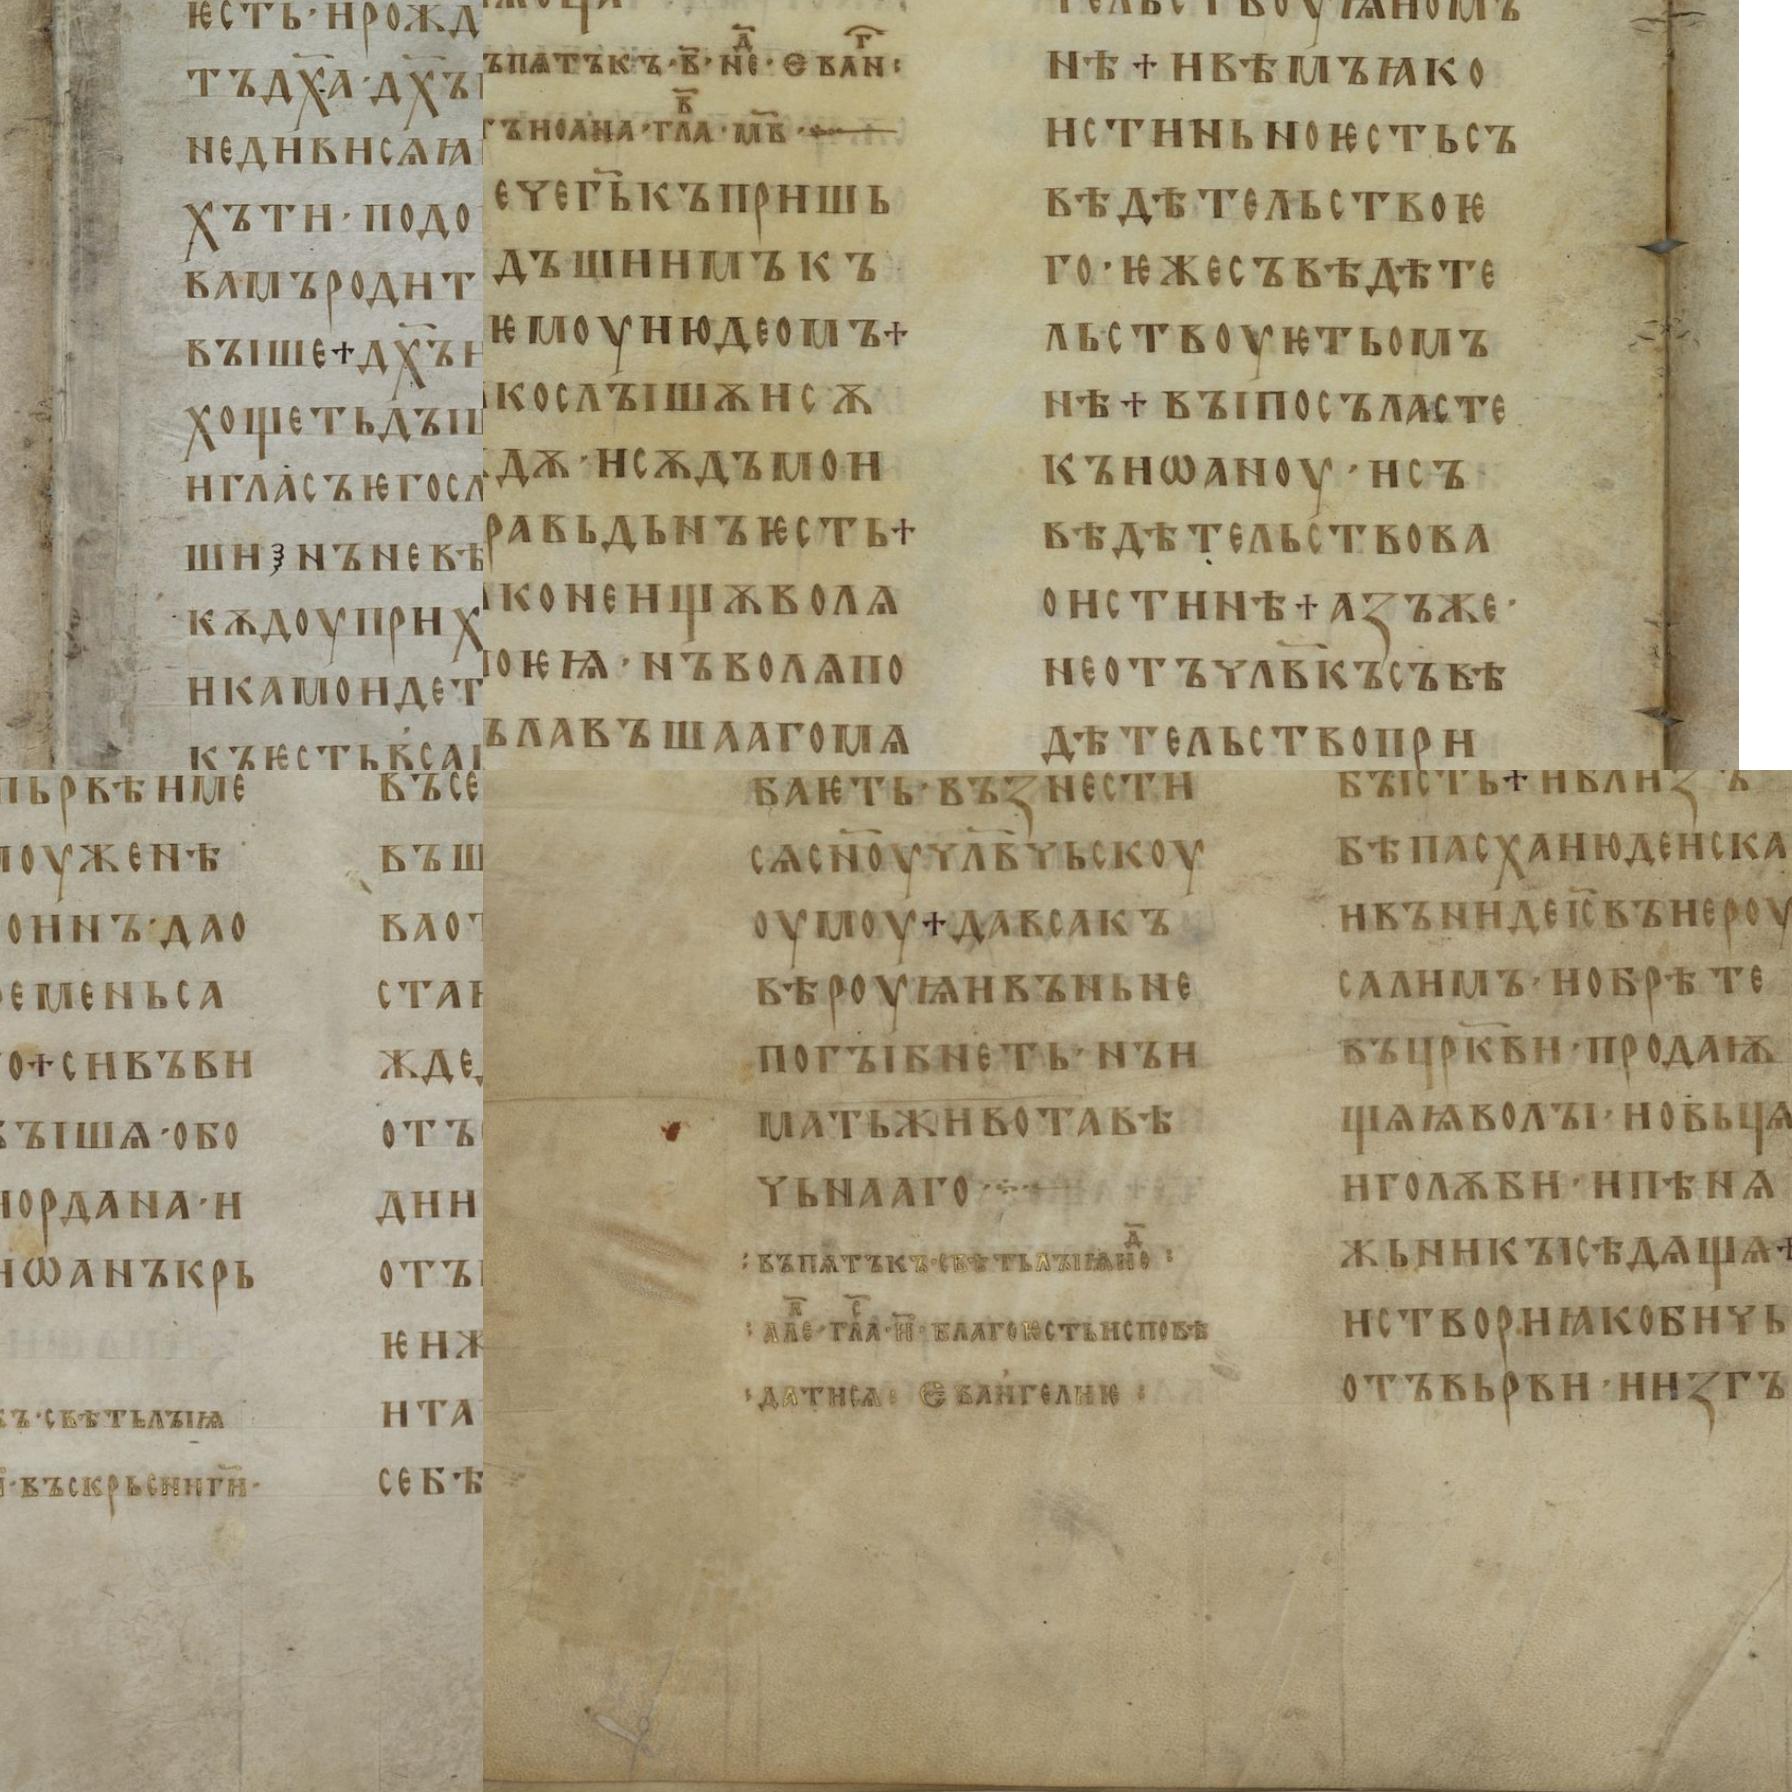 ѥсть·нрожд
тъдх҃а·дх҃ъ
недивисѧꙗ
хъти·подо
вамъродит
въіше+дх҃ъ
хощетьдъіш
игласъѥгосл
шиꙁнъневѣ
кѫдоуприх
икамоидет
къѥстьвса
ъпѧтъкъ·в҃·не·еван:
гъиоана·гла·мв·
ечег҃ькъпришь
дъшиимъкъ
ѥмоуиюдеомъ+
кослъішѫисѫ
дѫ·исѫдъмои
равьдьнъѥсть+
конеищѫволѧ
моѥꙗ·нъволѧпо
ълавъшаагомѧ
тельствоуѭномъ
нѣ+ивѣмъꙗко
истиньноѥстьсъ
вѣдѣтельствоѥ
го·ѥжесъвѣдѣте
льствоуѥтьомъ
нѣ+въіпосъласте
къиѡаноу·исъ
вѣдѣтельствова
оистинѣ+аꙁъже·
неотъчлв҃късъвѣ
дѣтельствопри
пьрвѣниме
моуженѣ
онинъ·дао
ременьса
о+сивъви
въішѧ·обо
иордана·и
иѡанъкрь
къ·свѣтьлъіꙗ
въскрьснигн҃·
въсе
въш
ваот
стан
жде
отъ
дни
отъ
ѥиж
ита
себѣ
баѥть·въꙁнести
сѧсн҃оучлв҃чьскоу
оумоу+давсакъ
вѣроуѩивъньне
погъібнеть·нъи
матьживотавѣ
чьнааго
:въпѧтъкъ·свѣтьлъіѩне:
:але·гла·н·благоѥстьисповѣ
:датисѧ: Евангелиѥ:
бъість+иблиꙁъ
бѣпасхаиюдеиска
ивъниде·іс҃въиероу
салимъ·иобрѣте
въцркв҃и·продаѭ
щѧꙗволъі·иовьцѧ
иголѫби·ипѣнѧ
жьникъісѣдѧщѧ+
истворнꙗкобичь
отъвьрви·ииꙁгъ